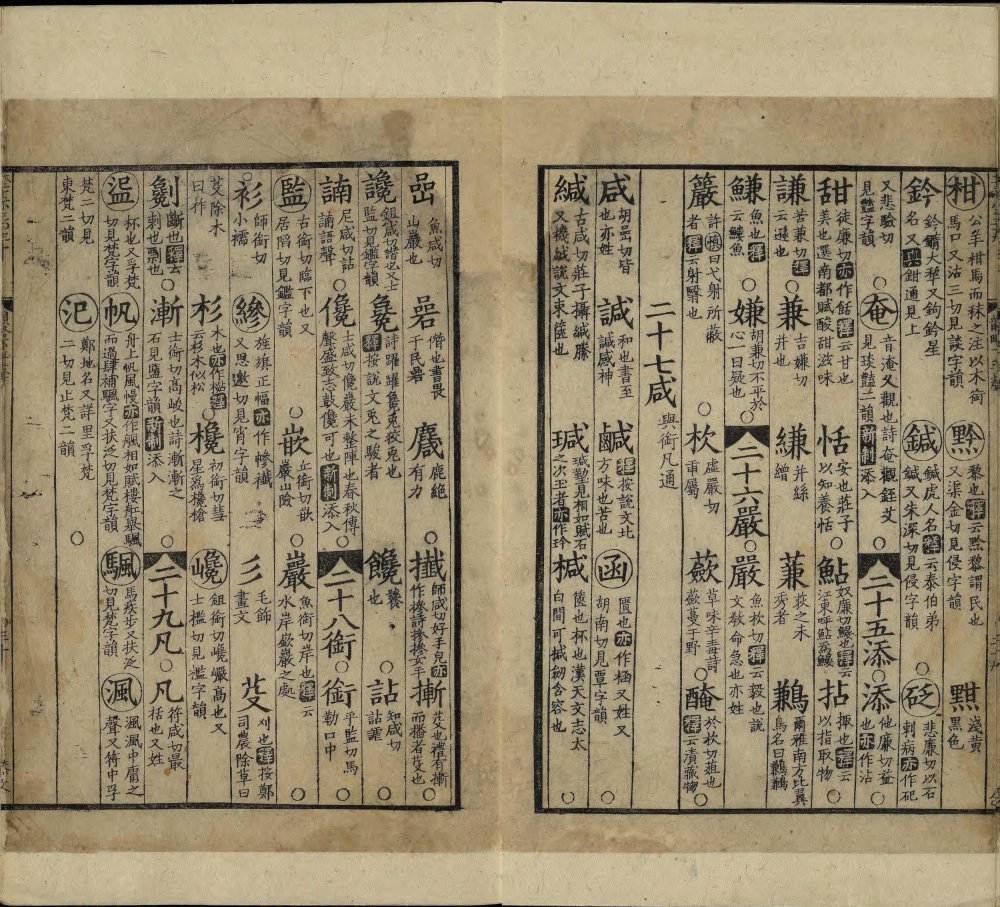 柑 公羊柑馬而秣之注以木銜馬口又沽三切見談字韻 黔 黎也釋云黑黔黎謂民也又渠金切見侵字韻 黚 淺黃黑色
鈐 鈐鑰大犂又鉤鈐星名又與鉗通見上 鍼 鍼虎人名釋云泰伯弟鍼又朱深切見侵字韻 砭 悲廉切以石刺病亦作砭
又悲驗切見豔字韻 奄 音淹又觀也詩奄觀銍艾見琰豔二韻新制添入 二十五添 添 他廉切益也亦作沾
甜 徒廉切亦作餂釋云甘也美也選南都賦酸甜滋味 恬 安也莊子以知養恬 鮎 奴廉切鰋也釋云江東呼鮎為鮧 拈 㨖也釋云以指取物
謙 苦兼切釋云遜也 兼 古嫌切并也 縑 并絲繒 蒹 荻之未秀者 鶼 爾雅南方比翼鳥名曰鶼鶼
鰜 魚也釋云鰜魚 嫌 胡兼切不平於心一曰疑也 二十六嚴 嚴 魚杴切釋云毅也說文敎命急也亦姓
籢 許曰弋射所蔽者釋云射翳也 杴 虛嚴切臿屬 蘞 草味辛毒詩蘞蔓于野 醃 於杴切葅也釋云漬藏物
二十七咸 與銜凡通
咸 胡嵒切皆也亦姓 諴 和也書至諴感神 鹹 釋按說文北方味也苦也 函 匱也亦作椷又姓又胡南切見覃字韻
緘 古咸切莊子攝緘縢又機緘說文束篋也 瑊 瑊玏見相如賦石之次玉者亦作玪 椷 篋也杯也漢天文志太白間可椷劒含容也
嵒 魚咸切山巖也 碞 僭也書畏于民碞 麙 鹿絕有力 攕 師咸切好手皃亦作摻詩摻摻女手 摲 芟也禮有摲而播者芟也
讒 鉏咸切譖也又士監切見鑑字韻 毚 詩躍躍毚兔狡兔也釋按說文兔之駿者 饞 饕也 詀 知咸切詀諵
諵 尼咸切詀諵語聲 儳 士咸切儳嚴未整陣也春秋傳聲盛致志鼓儳可也新制添入 二十八銜 銜 乎監切馬勒口中
監 古銜切臨下也又居陷切見鑑字韻 嵌 丘銜切嵌巖山險 巖 魚銜切岸也釋云水岸嶔巖之處
衫 師銜切小襦 縿 旌旗正幅亦作幓襳又思邀切見宵字韻 彡 毛飾畫文 芟 刈也釋按鄭司農除草曰
芟除木曰柞 杉 木也亦作檆釋云杉木似松 欃 初銜切彗星為欃槍 巉 鉏銜切巉巖高也又士檻切見檻字韻
劖 斷也釋云刺也剽也 漸 士銜切高峻也詩漸漸之石見鹽字韻新制添入 二十九凡 凡 符咸切最括也又姓
𥁎 杯也又孚梵切見梵字韻 帆 舟上帆風幔亦作颿相如賦樓舡舉颿而過肆補颿字又扶泛切見梵字韻 颿 馬疾步又扶泛切見梵字韻 渢 渢渢中庸之聲又符中孚
梵二切見東梵二韻 汜 鄭地名又詳里孚梵二切見止梵二韻